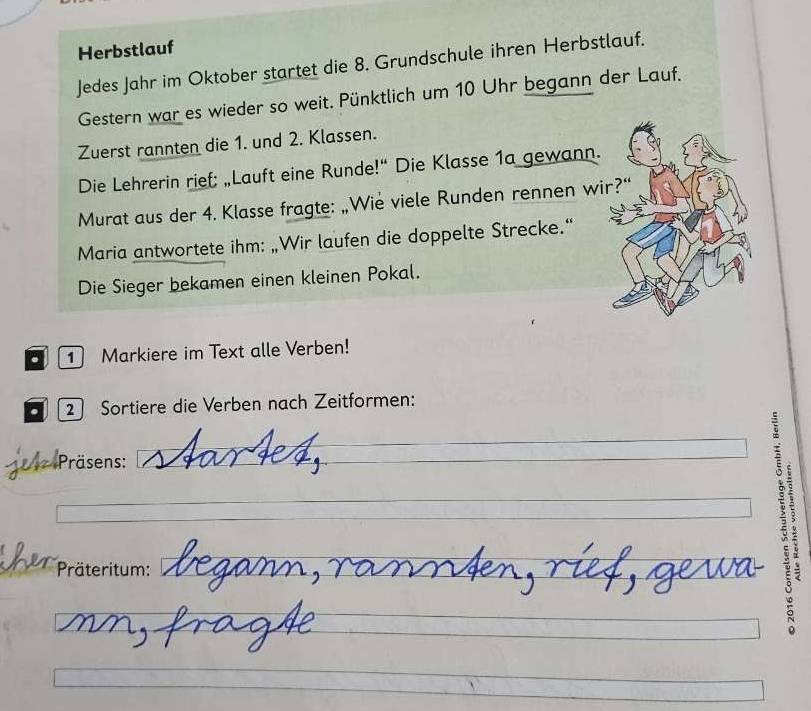 Herbstlauf
Jedes Jahr im Oktober startet die 8. Grundschule ihren Herbstlauf.
Gestern war es wieder so weit. Pünktlich um 10 Uhr begann der Lauf.
Zuerst rannten die 1. und 2. Klassen.
Die Lehrerin rief: „Lauft eine Runde!“ Die Klasse 1a gewann.
Murat aus der 4. Klasse fragte: „Wie viele Runden rennen wir?“
Maria antwortete ihm: „Wir laufen die doppelte Strecke.“
Die Sieger bekamen einen kleinen Pokal.
1
1 Markiere im Text alle Verben!
2 Sortiere die Verben nach Zeitformen:
jetzt Präsens: startet,
Präteritum: begann, rannten, rief, gewa-
nn, fragte
© 2016 Cornelsen Schulverlage GmbH, Berlin
Alle Rechte vorbehalten.